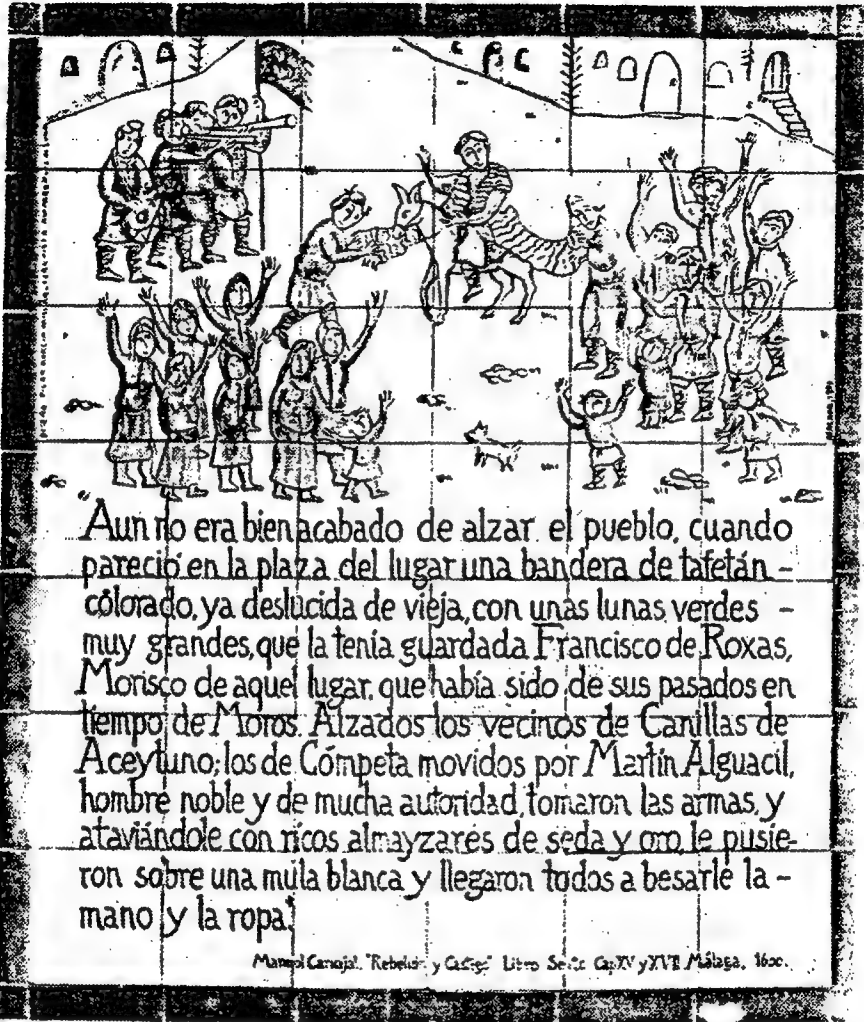 Aun no era bien acabado de alzar el pueblo, cuando
pareció en la plaza del lugar una bandera de tafetán -
colorado, ya deslucida de vieja, con unas lunas verdes -
muy grandes, que la tenia guardada Francisco de Roxas,
Morisco de aquel lugar, que había sido de sus pasados en
tiempo de Moros. Alzados los vecinos de Canillas de
Aceytuno; los de Cómpeta movidos por Martín Alguacil,
hombre noble y de mucha autoridad, tomaron las armas, y
ataviándole con ricos almayzares de seda y oro, le pusie-
ron sobre una mula blanca y llegaron todos a besarle la -
mano y la ropa."
"Rebelión y Castigo" Libro Cap XV y XVII Málaga, 1600.